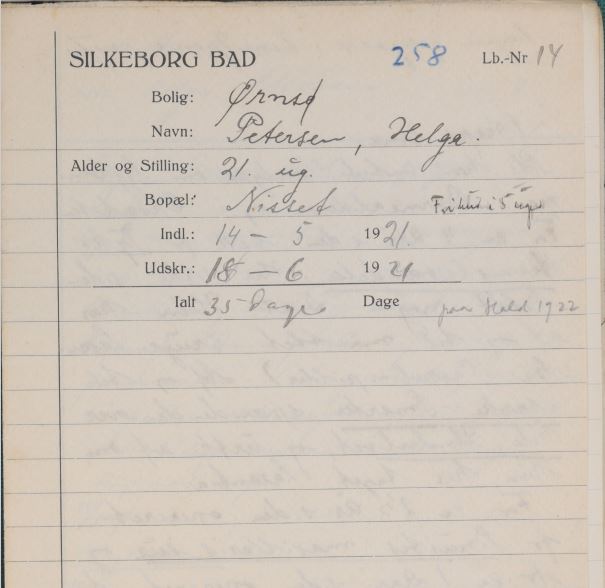 SILKEBORG BAD 258 Lb.-Nr 14
Bolig: Ørnsø
Navn: Petersen, Helga.
Alder og Stilling: 21. ug.
Bopæl: Nisset Frikur i 5 uger
Indl.: 14 - 5 1921.
Udskr.: 18 - 6 1921
Ialt 35 Dage Dage paa Hald 1922